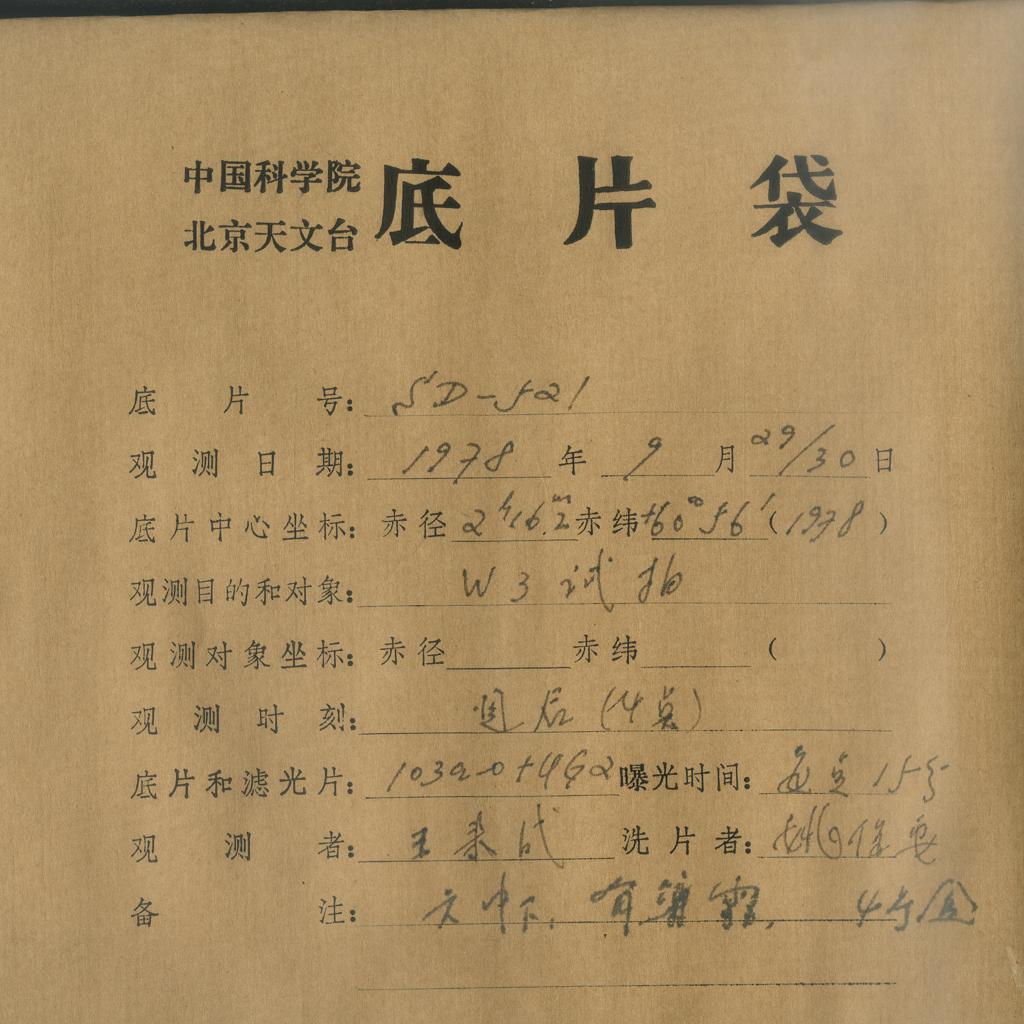 中国科学院
北京天文台 底片袋
底片号: SD-521
观测日期: 1978年 9月 29/30日
底片中心坐标: 赤径 2h16m.2 赤纬 +60°56′ (1978)
观测目的和对象: W3 试拍
观测对象坐标: 赤径 赤纬 ( )
观测时刻: 见后(4点)
底片和滤光片: 103a-0+GG2 曝光时间: 每点 15分
观测者: 王 洗片者:
备注: 天中下, 有薄雾,